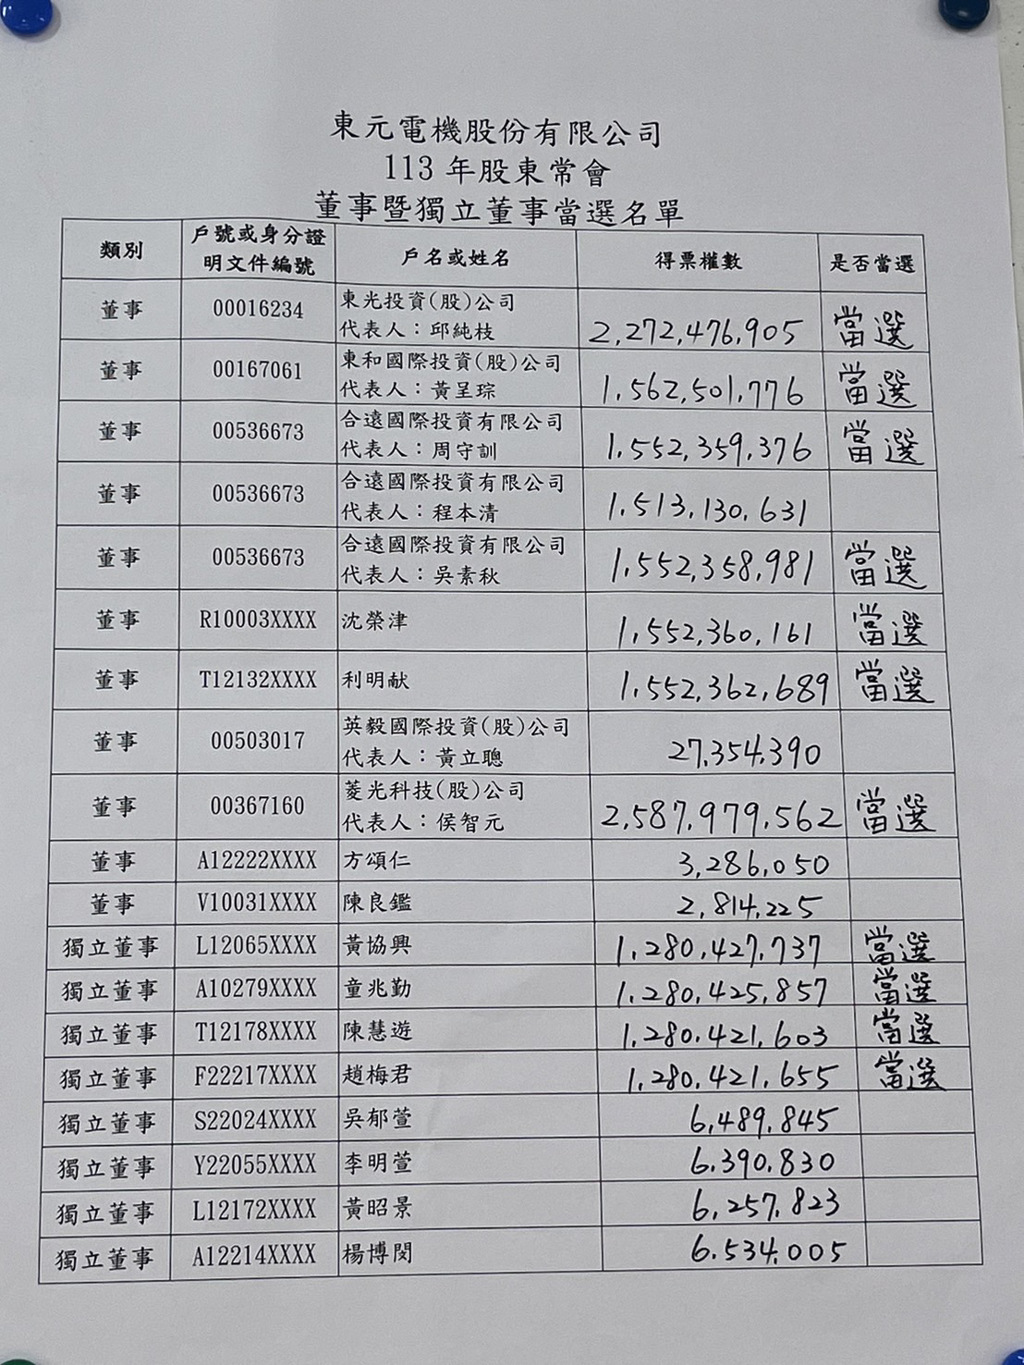 東元電機股份有限公司
113 年股東常會
董事暨獨立董事當選名單
類別 戶號或身分證明文件編號 戶名或姓名 得票權數 是否當選
董事 00016234 東光投資(股)公司 代表人：邱純枝 2,272,476,905 當選
董事 00167061 東和國際投資(股)公司 代表人：黃呈琮 1,562,501,776 當選
董事 00536673 合遠國際投資有限公司 代表人：周守訓 1,552,359,376 當選
董事 00536673 合遠國際投資有限公司 代表人：程本清 1,513,130,631
董事 00536673 合遠國際投資有限公司 代表人：吳素秋 1,552,358,981 當選
董事 R10003XXXX 沈榮津 1,552,360,161 當選
董事 T12132XXXX 利明献 1,552,362,689 當選
董事 00503017 英毅國際投資(股)公司 代表人：黃立聰 27,354,390
董事 00367160 菱光科技(股)公司 代表人：侯智元 2,587,979,562 當選
董事 A12222XXXX 方頌仁 3,286,050
董事 V10031XXXX 陳良鑑 2,814,225
獨立董事 L12065XXXX 黃協興 1,280,427,737 當選
獨立董事 A10279XXXX 童兆勤 1,280,425,857 當選
獨立董事 T12178XXXX 陳慧遊 1,280,421,603 當選
獨立董事 F22217XXXX 趙梅君 1,280,421,655 當選
獨立董事 S22024XXXX 吳郁萱 6,489,845
獨立董事 Y22055XXXX 李明萱 6,390,830
獨立董事 L12172XXXX 黃昭景 6,257,823
獨立董事 A12214XXXX 楊博閔 6,534,005